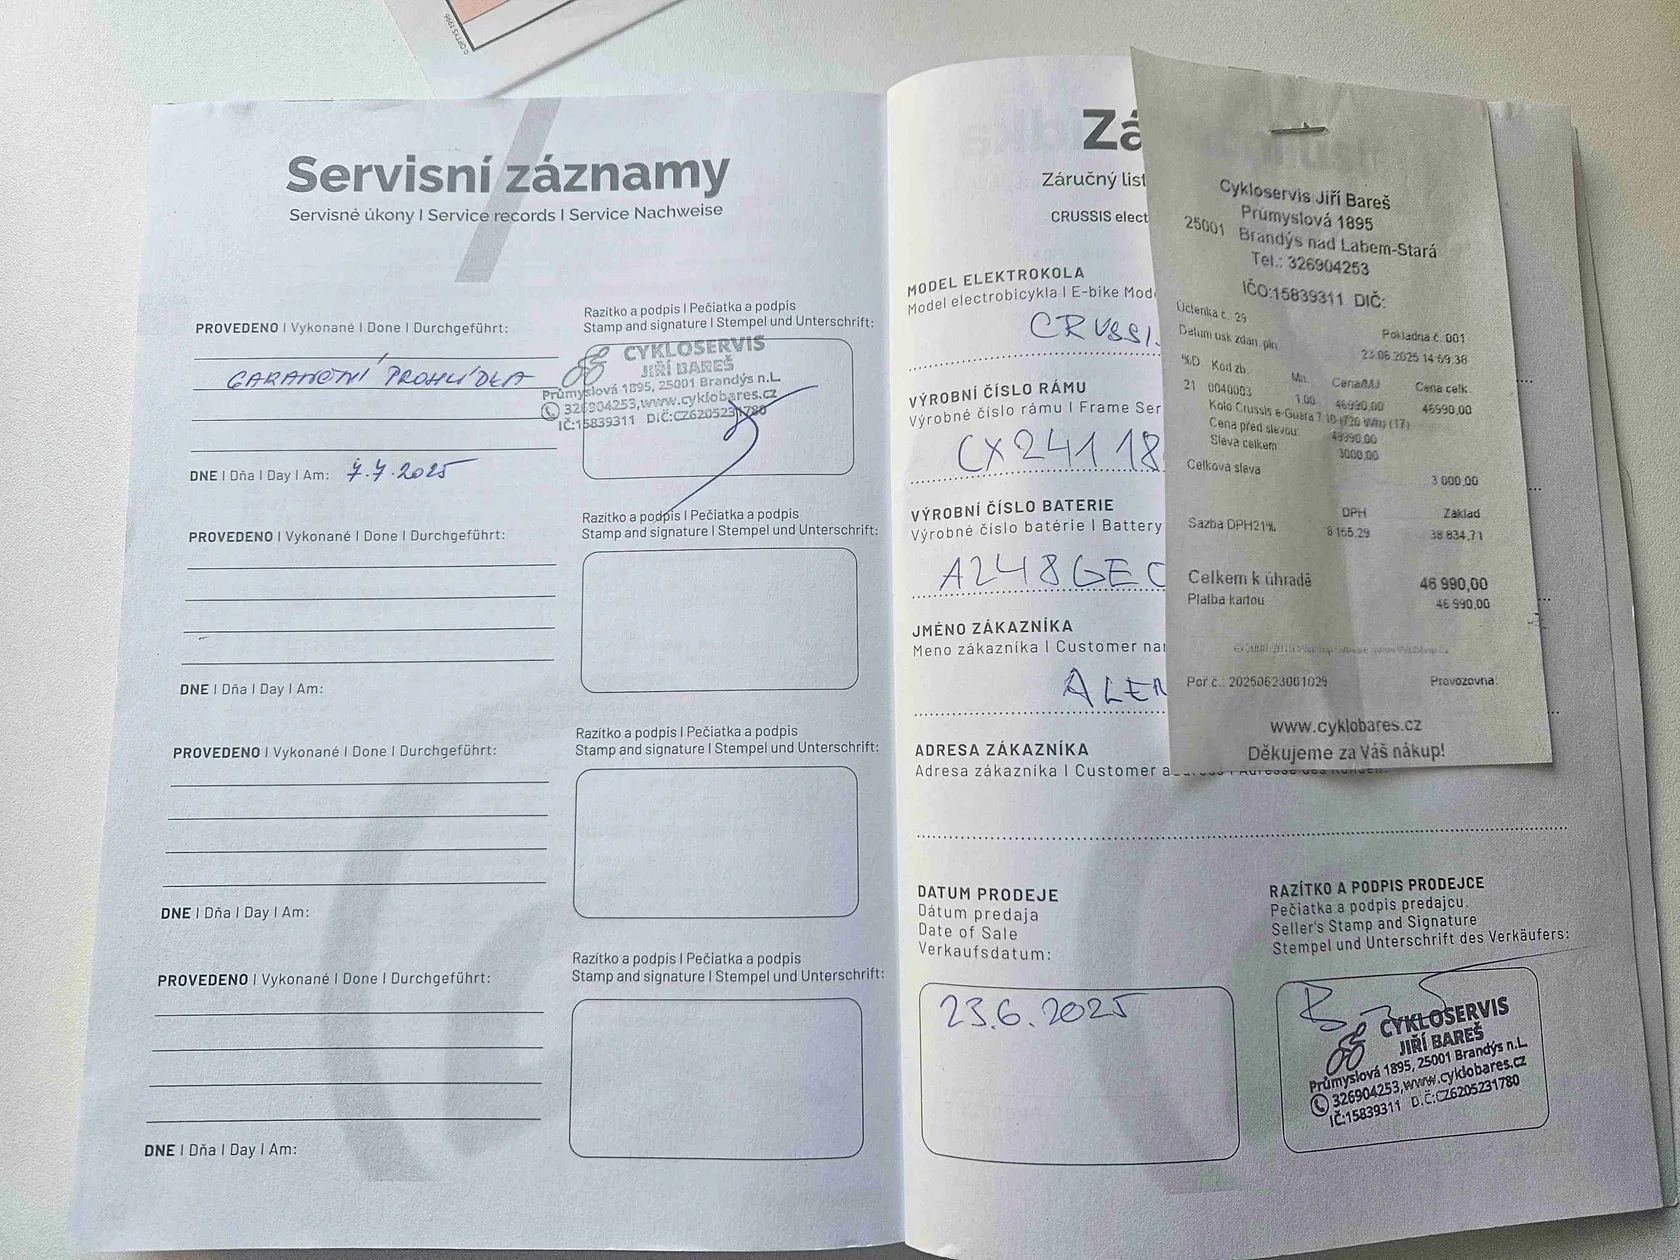 © OPTYS 1996
Servisní záznamy
Servisné úkony I Service records I Service Nachweise
PROVEDENO I Vykonané I Done I Durchgeführt:
Razítko a podpis I Pečiatka a podpis
Stamp and signature I Stempel und Unterschrift:
GARANČNÍ PROHLÍDKA
CYKLOSERVIS
JIŘÍ BAREŠ
Průmyslová 1895, 25001 Brandýs n.L.
326904253,www.cyklobares.cz
IČ:15839311 DIČ:CZ6205231780
DNE I Dňa I Day I Am: 7.7.2025
PROVEDENO I Vykonané I Done I Durchgeführt:
Razítko a podpis I Pečiatka a podpis
Stamp and signature I Stempel und Unterschrift:
DNE I Dňa I Day I Am:
PROVEDENO I Vykonané I Done I Durchgeführt:
Razítko a podpis I Pečiatka a podpis
Stamp and signature I Stempel und Unterschrift:
DNE I Dňa I Day I Am:
PROVEDENO I Vykonané I Done I Durchgeführt:
Razítko a podpis I Pečiatka a podpis
Stamp and signature I Stempel und Unterschrift:
DNE I Dňa I Day I Am:
Zá
Záručný list
CRUSSIS elect
MODEL ELEKTROKOLA
Model electrobicykla I E-bike Mod
CRUSSI
VÝROBNÍ ČÍSLO RÁMU
Výrobné číslo rámu I Frame Ser
CX241 18
VÝROBNÍ ČÍSLO BATERIE
Výrobné číslo batérie I Battery
A248GEC
JMÉNO ZÁKAZNÍKA
Meno zákazníka I Customer na
ALEN
ADRESA ZÁKAZNÍKA
Adresa zákazníka I Customer a
DATUM PRODEJE
Dátum predaja
Date of Sale
Verkaufsdatum:
23.6.2025
RAZÍTKO A PODPIS PRODEJCE
Pečiatka a podpis predajcu.
Seller's Stamp and Signature
Stempel und Unterschrift des Verkäufers:
CYKLOSERVIS
JIŘÍ BAREŠ
Průmyslová 1895, 25001 Brandýs n.L.
326904253,www.cyklobares.cz
IČ:15839311 D.Č:CZ6205231780
Cykloservis Jiří Bareš
Průmyslová 1895
25001 Brandýs nad Labem-Stará
Tel.: 326904253
IČO:15839311 DIČ:
Účtenka č.: 29
Pokladna č.:001
Datum usk.zdan. pln.
23.06.2025 14:59:38
%D Kód zb. Mn. Cena/MJ Cena celk.
21 0040003 1.00 46990,00 46990,00
Kolo Crussis e-Guera 7.10 (720 Wh) (17)
Cena před slevou: 49990.00
Sleva celkem: 3000.00
Celková sleva 3 000,00
DPH Základ
Sazba DPH21% 8 155,29 38 834,71
Celkem k úhradě 46 990,00
Platba kartou 46 990,00
Poř.č.: 20250623001029 Provozovna:
www.cyklobares.cz
Děkujeme za Váš nákup!